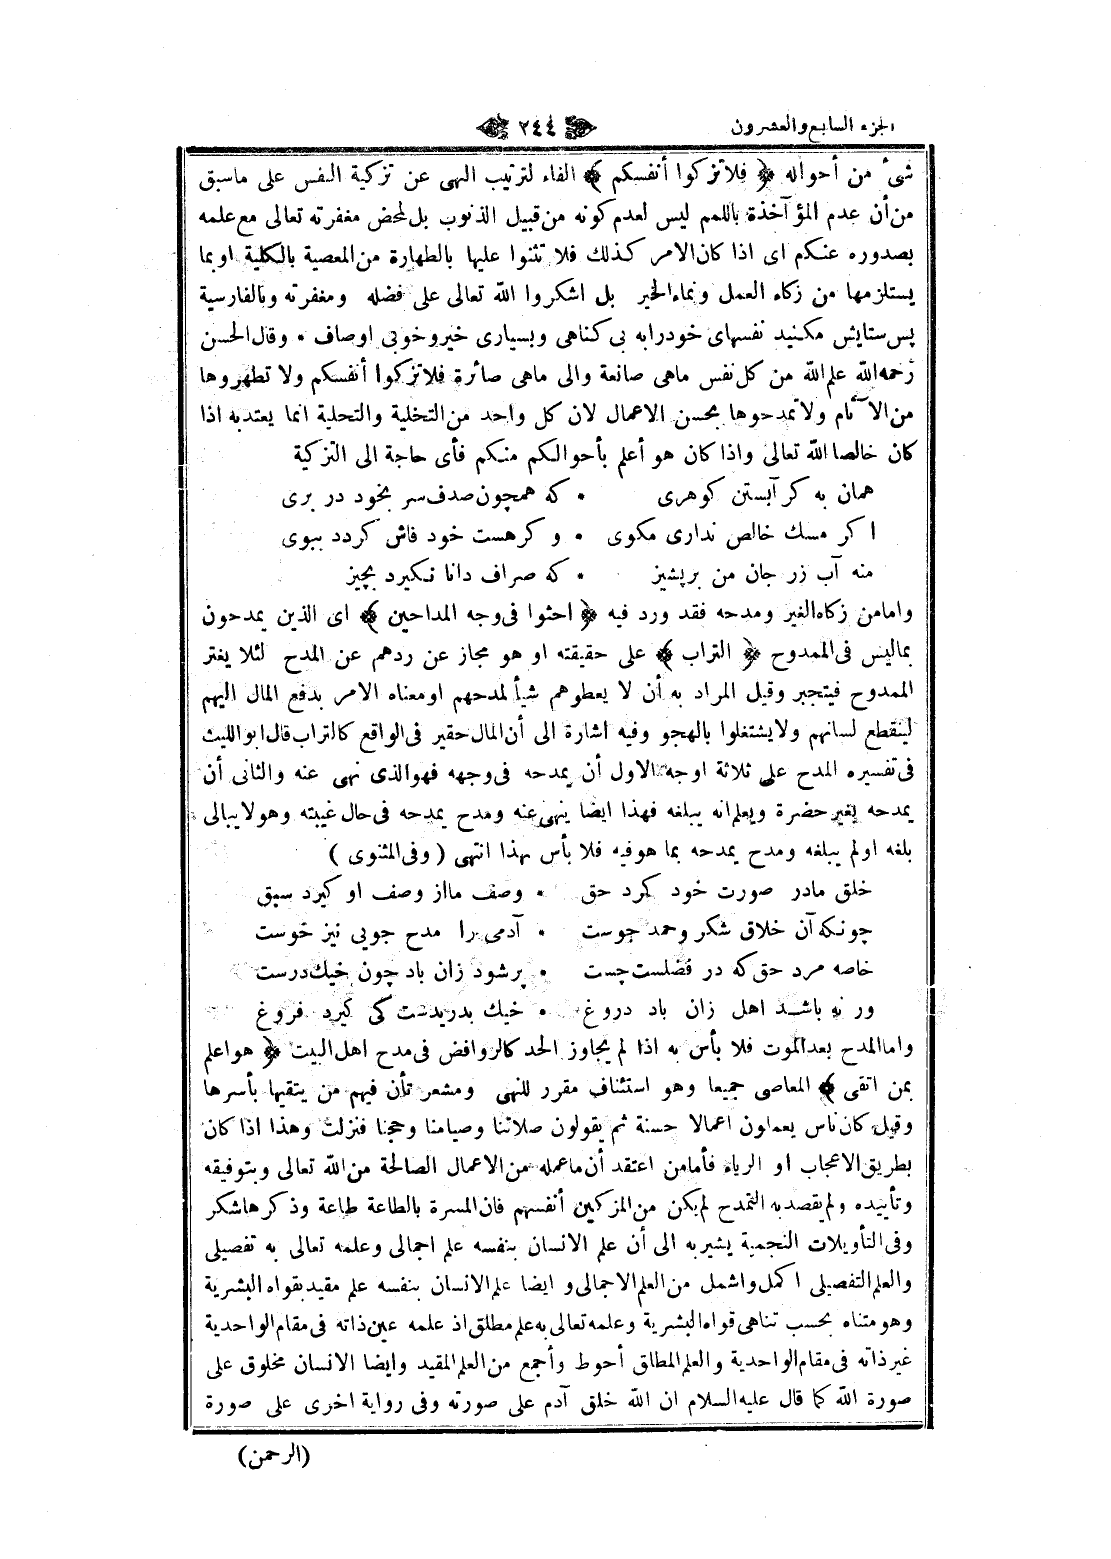 الجزء السابع والعشرون
٢٤٤
شئ من أحواله ﴿ فلا تزكوا أنفسكم ﴾ الفاء لترتيب النهى عن تزكية النفس على ماسبق
من أن عدم المؤآخذة باللمم ليس لعدم كونه من قبيل الذنوب بل لمحض مغفرته تعالى مع علمه
بصدوره عنكم اى اذا كان الامر كذلك فلا تثنوا عليها بالطهارة من المعصية بالكلية او بما
يستلزمها من زكاء العمل ونماء الخير بل اشكروا الله تعالى على فضله ومغفرته وبالفارسية
پس ستايش مكنيد نفسهاى خودرا به بى كناهى وبسيارى خير وخوبى اوصاف • وقال الحسن
رحمه الله علم الله من كل نفس ماهى صانعة والى ماهى صائرة فلا تزكوا أنفسكم ولا تطهروها
من الآثام ولا تمدحوها بحسن الاعمال لان كل واحد من التخلية والتحلية انما يعتد به اذا
كان خالصا الله تعالى واذا كان هو أعلم بأحوالكم منكم فأى حاجة الى التزكية
همان به كر آبستن كوهرى • كه همچون صدف سر بخود در برى
اكر مسك خالص ندارى مكوى • و كرهست خود فاش كردد ببوى
منه آب زر جان من بر پشيز • كه صراف دانا نكيرد بچيز
وامامن زكاه الغير ومدحه فقد ورد فيه ﴿ احثوا فى وجه المداحين ﴾ اى الذين يمدحون
بماليس فى الممدوح ﴿ التراب ﴾ على حقيقته او هو مجاز عن ردهم عن المدح لئلا يغتر
الممدوح فيتجبر وقيل المراد به أن لا يعطوهم شيأ لمدحهم او معناه الامر بدفع المال اليهم
لينقطع لسانهم ولا يشتغلوا بالهجو وفيه اشارة الى أن المال حقير فى الواقع كالتراب قال ابو الليث
فى تفسيره المدح على ثلاثة اوجه الاول أن يمدحه فى وجهه فهو الذى نهى عنه والثانى أن
يمدحه بغير حضرة ويعلم انه يبلغه فهذا ايضا ينهى عنه ومدح يمدحه فى حال غيبته وهو لا يبالى
بلغه اولم يبلغه ومدح يمدحه بما هو فيه فلا بأس بهذا انتهى ( وفى المثنوى )
خلق مادر صورت خود كرد حق • وصف مااز وصف او كيرد سبق
چونكه آن خلاق شكر وحمد جوست • آدمى را مدح جويى نيز خوست
خاصه مرد حق كه در فضلست چست • پر شود زان باد چون خيك درست
ور نه باشد اهل زان باد دروغ • خيك بدريدست كى كيرد فروغ
واما المدح بعد الموت فلا بأس به اذا لم يجاوز الحد كالروافض فى مدح اهل البيت ﴿ هو اعلم
بمن اتقى ﴾ المعاصى جميعا وهو استئناف مقرر للنهى ومشعر بأن فيهم من يتقيها بأسرها
وقيل كان ناس يعملون اعمالا حسنة ثم يقولون صلاتنا وصيامنا وحجنا فنزلت وهذا اذا كان
بطريق الاعجاب او الرياء فأمامن اعتقد أن ماعمله من الاعمال الصالحة من الله تعالى وبتوفيقه
وتأييده ولم يقصد به التمدح لم يكن من المزكين أنفسهم فان المسرة بالطاعة طاعة وذكرها شكر
وفى التأويلات النجمية يشير به الى أن علم الانسان بنفسه علم اجمالى وعلمه تعالى به تفصيلى
والعلم التفصيلى اكمل واشمل من العلم الاجمالى و ايضا علم الانسان بنفسه علم مقيد بقواه البشرية
وهو متناه بحسب تناهى قواه البشرية وعلمه تعالى به علم مطلق اذ علمه عين ذاته فى مقام الواحدية
غير ذاته فى مقام الواحدية والعلم المطلق أحوط وأجمع من العلم المقيد وايضا الانسان مخلوق على
صورة الله كما قال عليه السلام ان الله خلق آدم على صورته وفى رواية اخرى على صورة
(الرحمن)